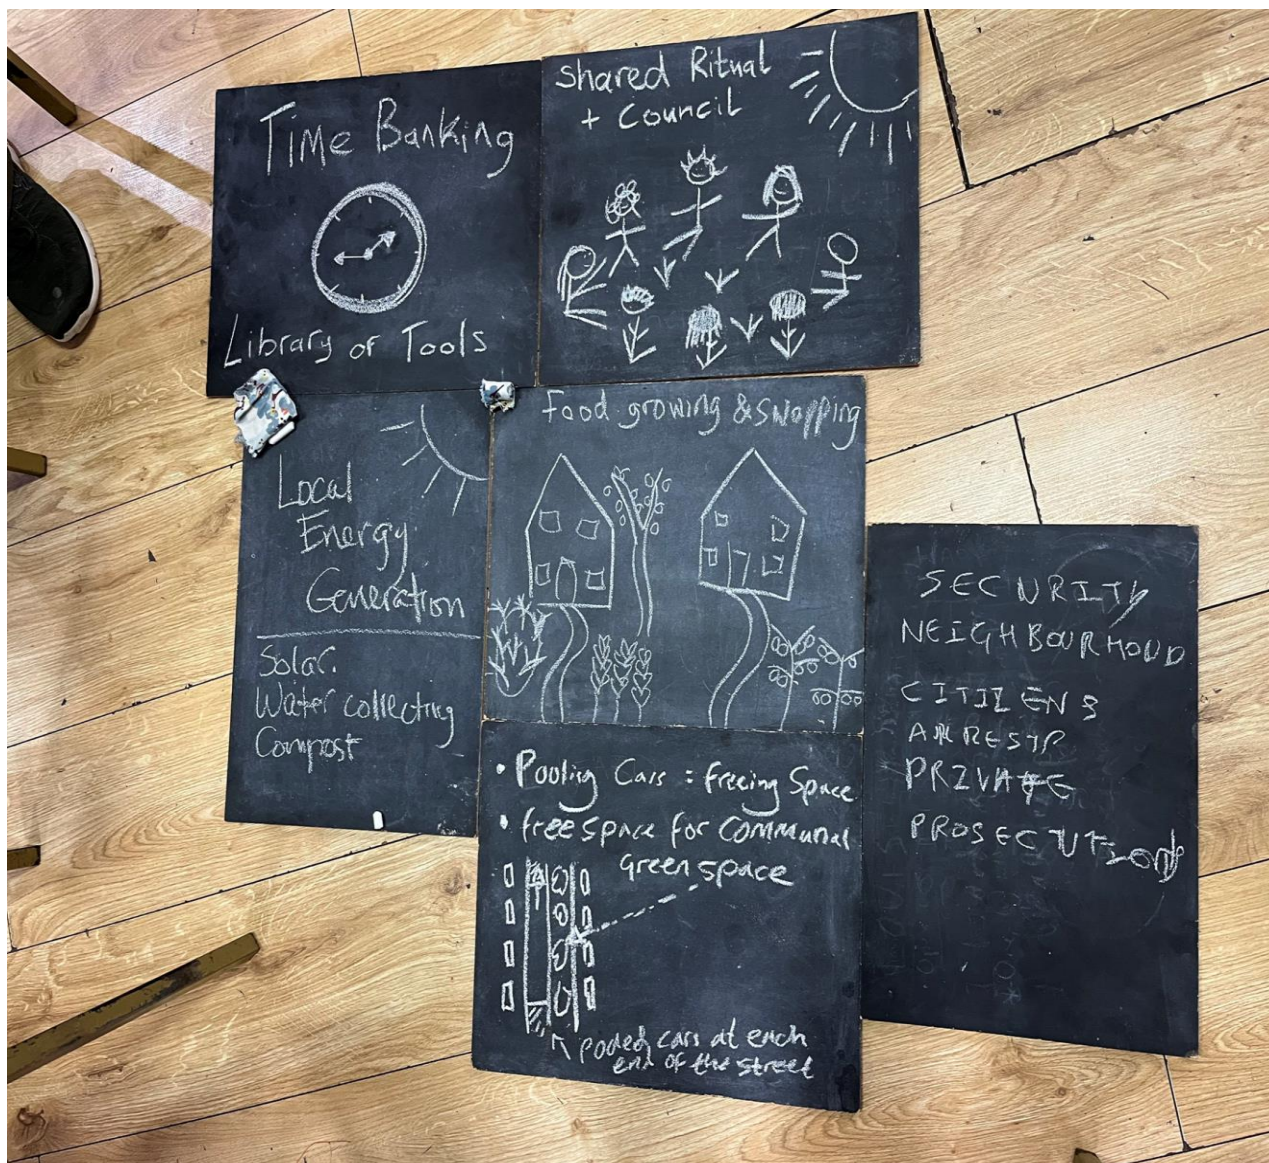 Time Banking
Library of Tools
Shared Ritual
+ Council
Local
Energy
Generation
Solar.
Water collecting
Compost
Food growing & swapping
• Pooling Cars = freeing Space
• free space for Communal
Green space
pooled cars at each
end of the street
SECURITY
NEIGHBOURHOOD
CITIZENS
ARREST
PRIVATE